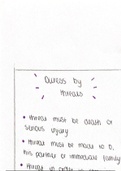 Duress by
threats
• threat must be death or
serious injury
• threat must be made to D,
his partner or immediate family